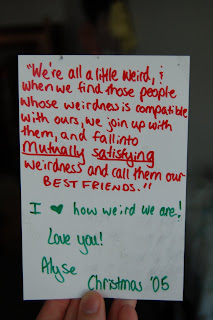 "We're all a little weird, &
when we find those people
whose weirdness is compatible
with ours, we join up with
them, and fall into
mutually satisfying
weirdness and call them our
BEST FRIENDS."
I ♥ how weird we are!
Love you!
Alyse
Christmas '05